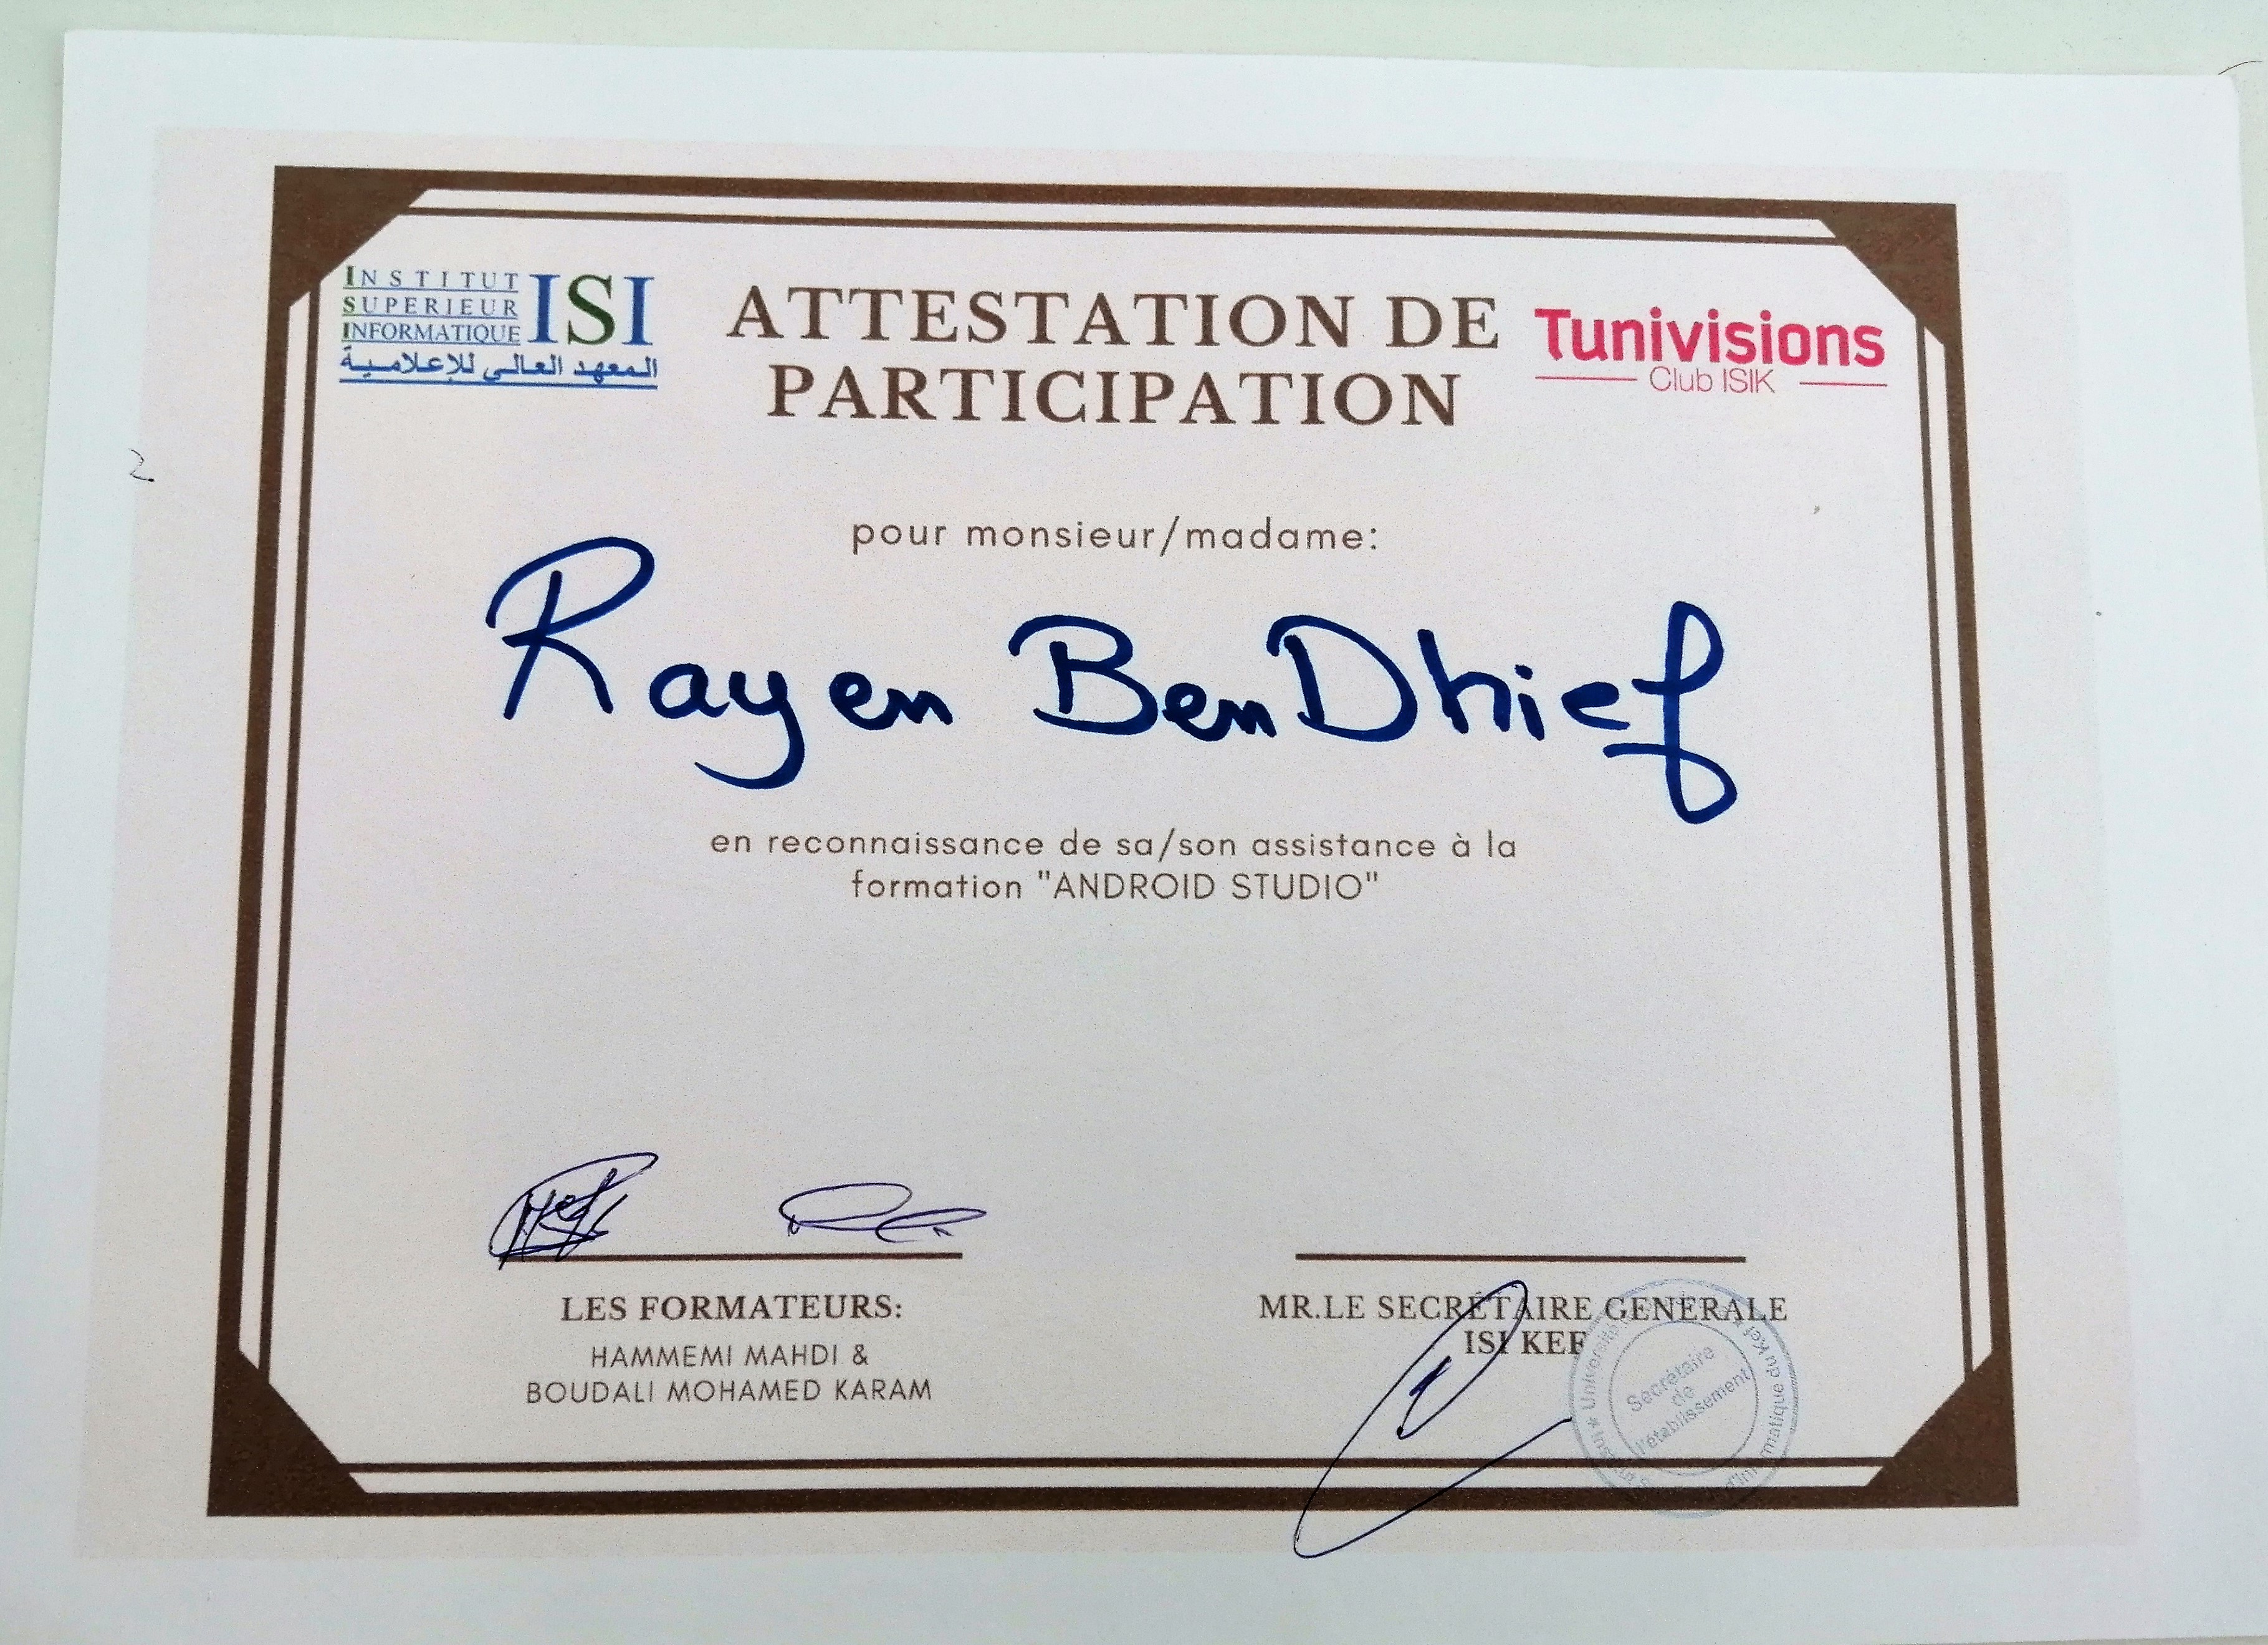 INSTITUT
SUPERIEUR
INFORMATIQUE
ISI
المعهد العالي للإعلامية
ATTESTATION DE
PARTICIPATION
Tunivisions
Club ISIK
2
pour monsieur/madame:
Rayen BenDhief
en reconnaissance de sa/son assistance à la
formation "ANDROID STUDIO"
LES FORMATEURS:
HAMMEMI MAHDI &
BOUDALI MOHAMED KARAM
MR.LE SECRÉTAIRE GENERALE
ISI KEF
Secrétaire
de
l'établissement
Université
d'Informatique du Kef